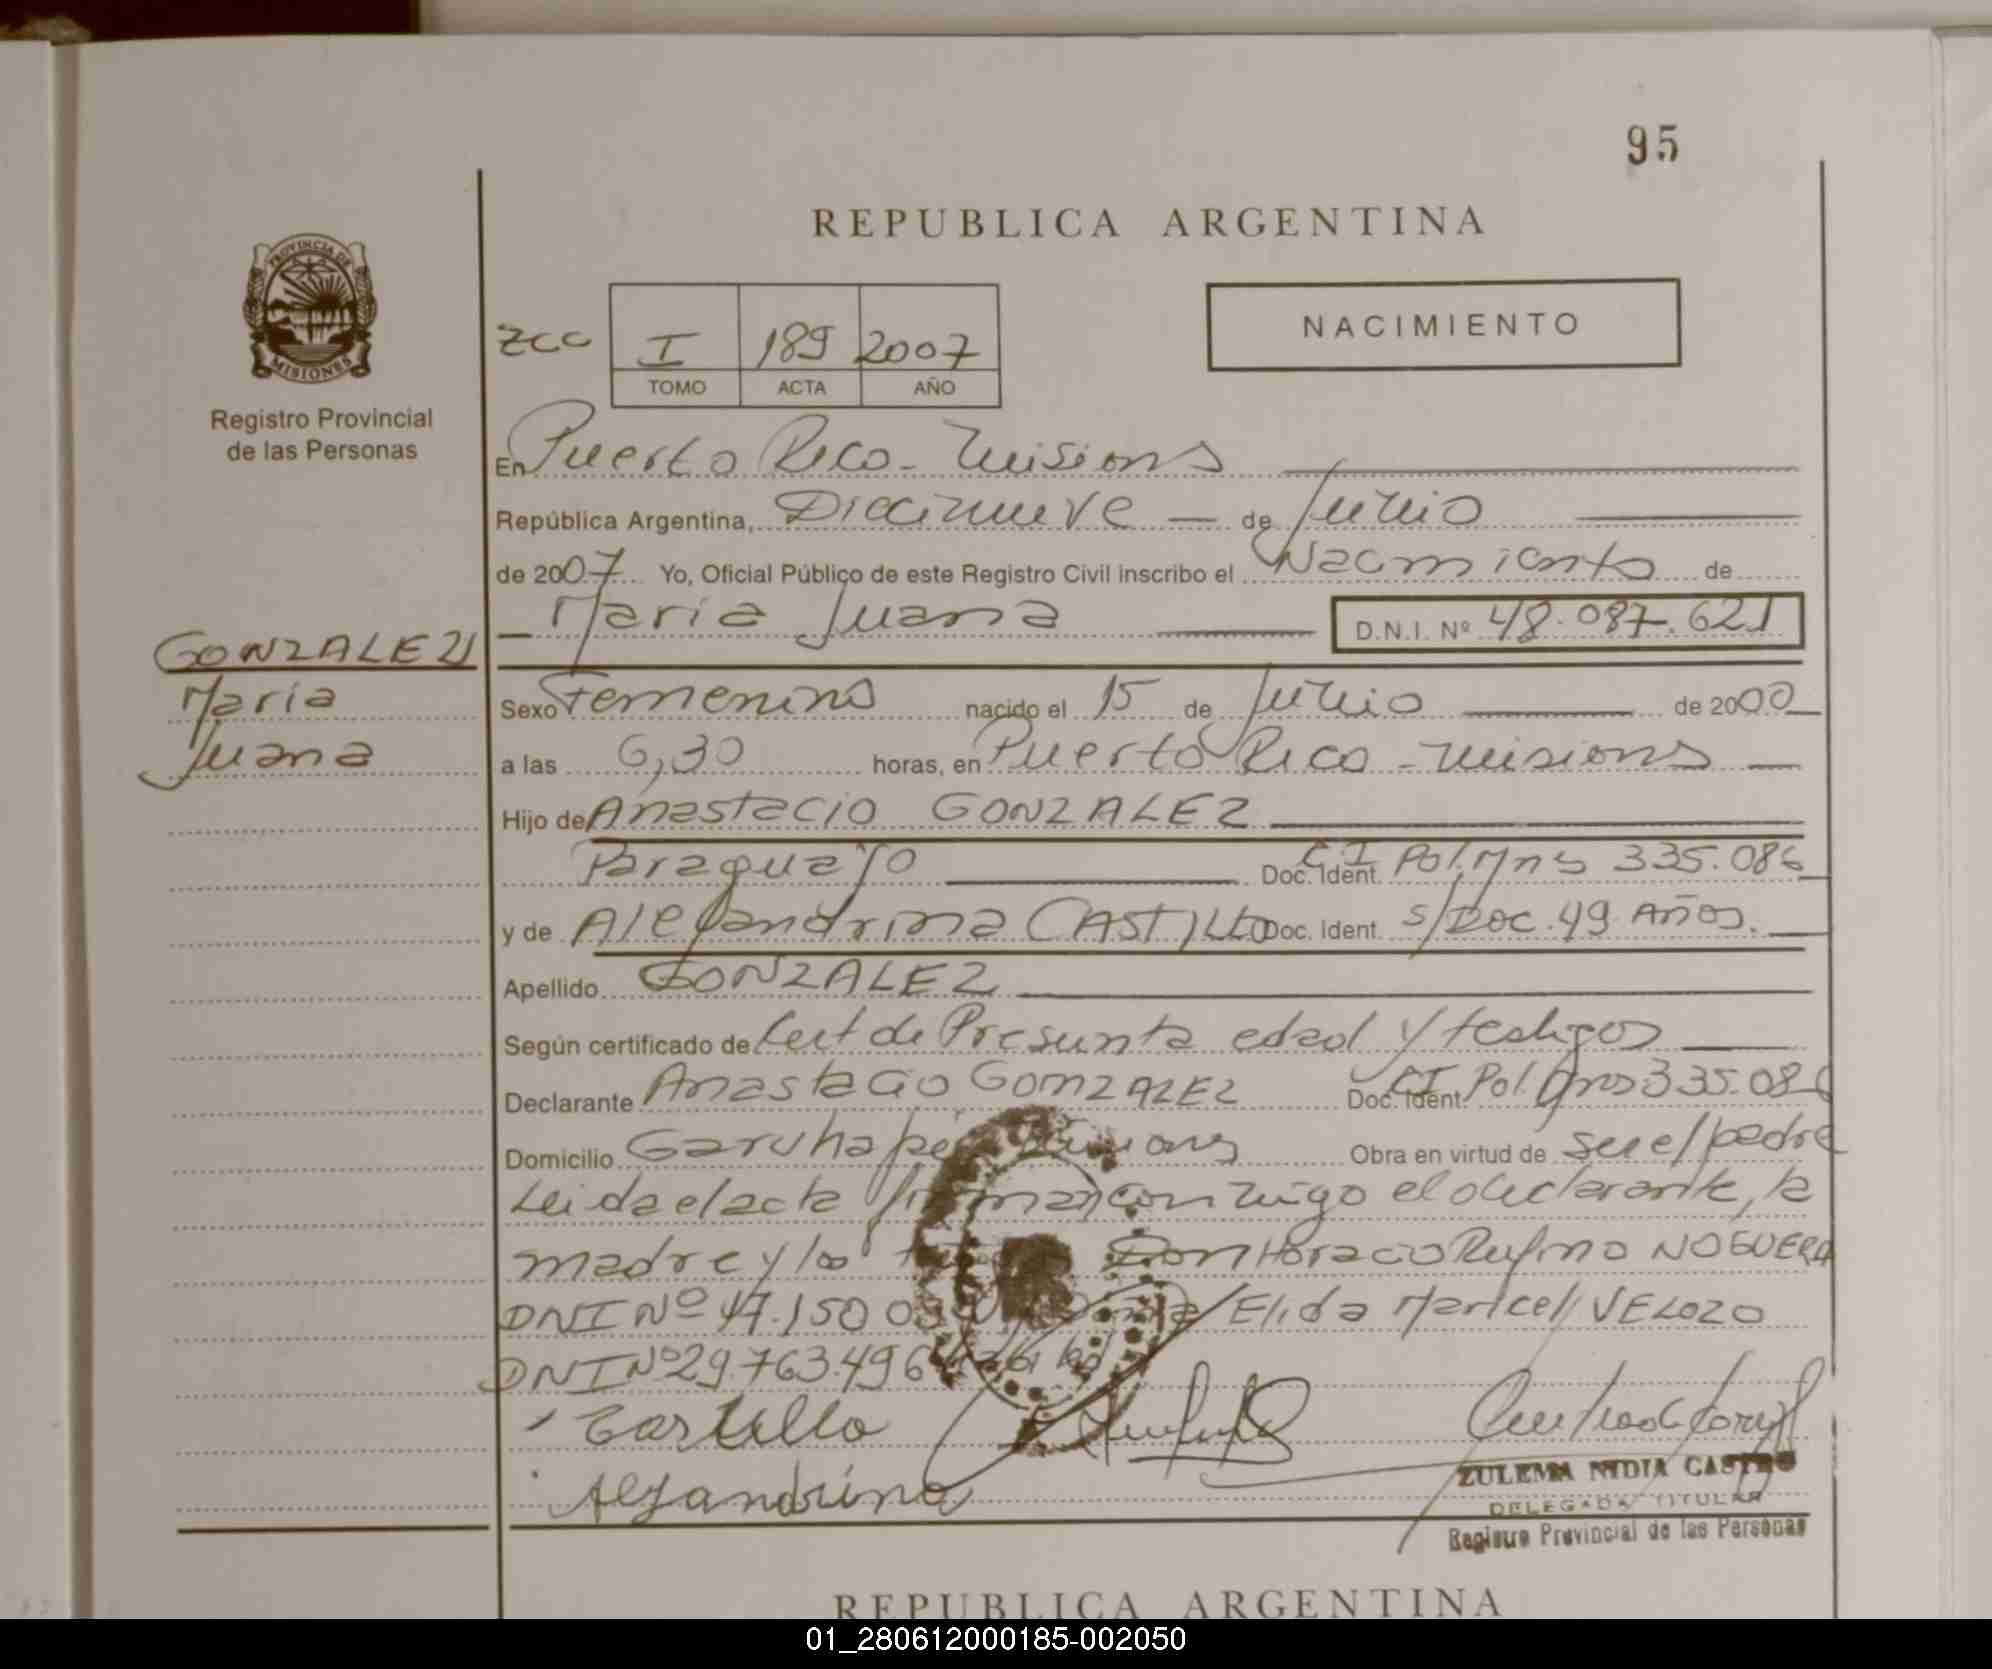 95
REPUBLICA ARGENTINA
PROVINCIA DE
MISIONES
Registro Provincial
de las Personas
ZCC I 189 2007
TOMO ACTA AÑO
NACIMIENTO
En Puerto Rico - Misiones
República Argentina, Diecinueve de Junio
de 2007 Yo, Oficial Público de este Registro Civil inscribo el Nacimiento de
Maria Juana D.N.I. Nº 48.087.621
GONZALEZ
Maria
Juana
Sexo Femenino nacido el 15 de Junio de 2000
a las 6,30 horas, en Puerto Rico - Misiones
Hijo de Anastacio GONZALEZ
Paraguayo Doc. Ident. C.I Pol. Mns 335.086
y de Alejandrina CASTILLO Doc. Ident. S/Doc. 49 Años.
Apellido GONZALEZ
Según certificado de Cert de Presunta edad y testigos
Declarante Anastacio GONZALEZ Doc. Ident. CI Pol. Mns 335.086
Domicilio Garuhapé Misiones Obra en virtud de ser el padre
Leida el acta firman conmigo el declarante, la
madre y los Don Horacio Rufino NOGUERA
DNI Nº Elida Maricel VELOZO
DNI Nº 29.763.496
Castillo
Alejandrina
ZULEMA NIDIA CASTRO
DELEGADA TITULAR
Registro Provincial de las Personas
REPUBLICA ARGENTINA
01_280612000185-002050